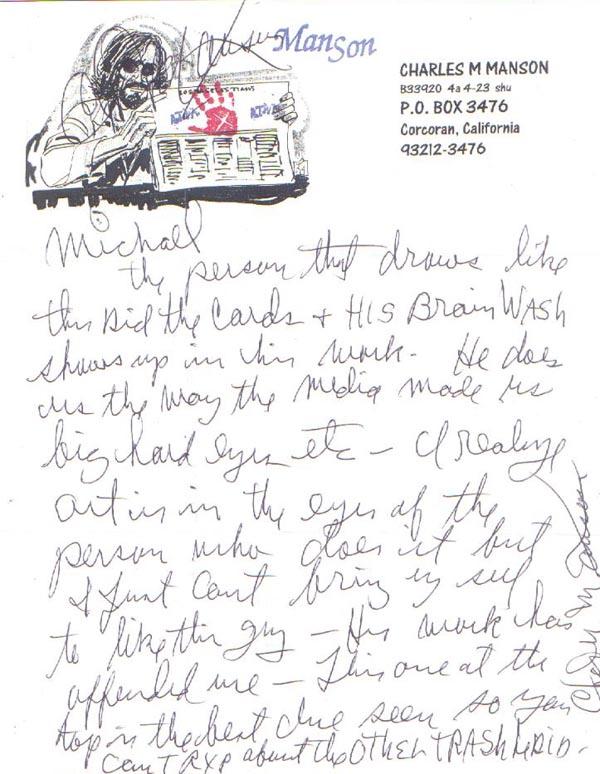 Manson
CHARLES M MANSON
B33920 4a 4-23 shu
P.O. BOX 3476
Corcoran, California
93212-3476
Michael
the person that draws like
this did the cards + HIS Brain WASH
shows up in his work. He does
us the way the media made us
big hard eyes etc – I realize
art is in the eyes of the
person who does it but
I Just can't bring my self
to like this guy – His work has
offended me – This one at the
top is the best I've seen so you
can't about the OTHER TRASH HE DID.